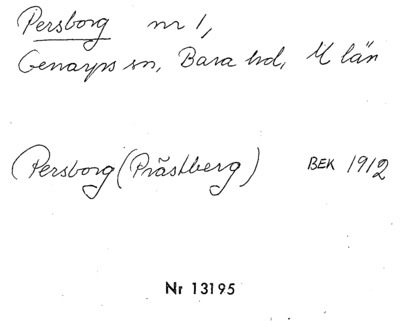 Persborg nr 1,
Genarps sn, Bara hd, M län
Persborg (Prästberg) BEK 1912
Nr 13195